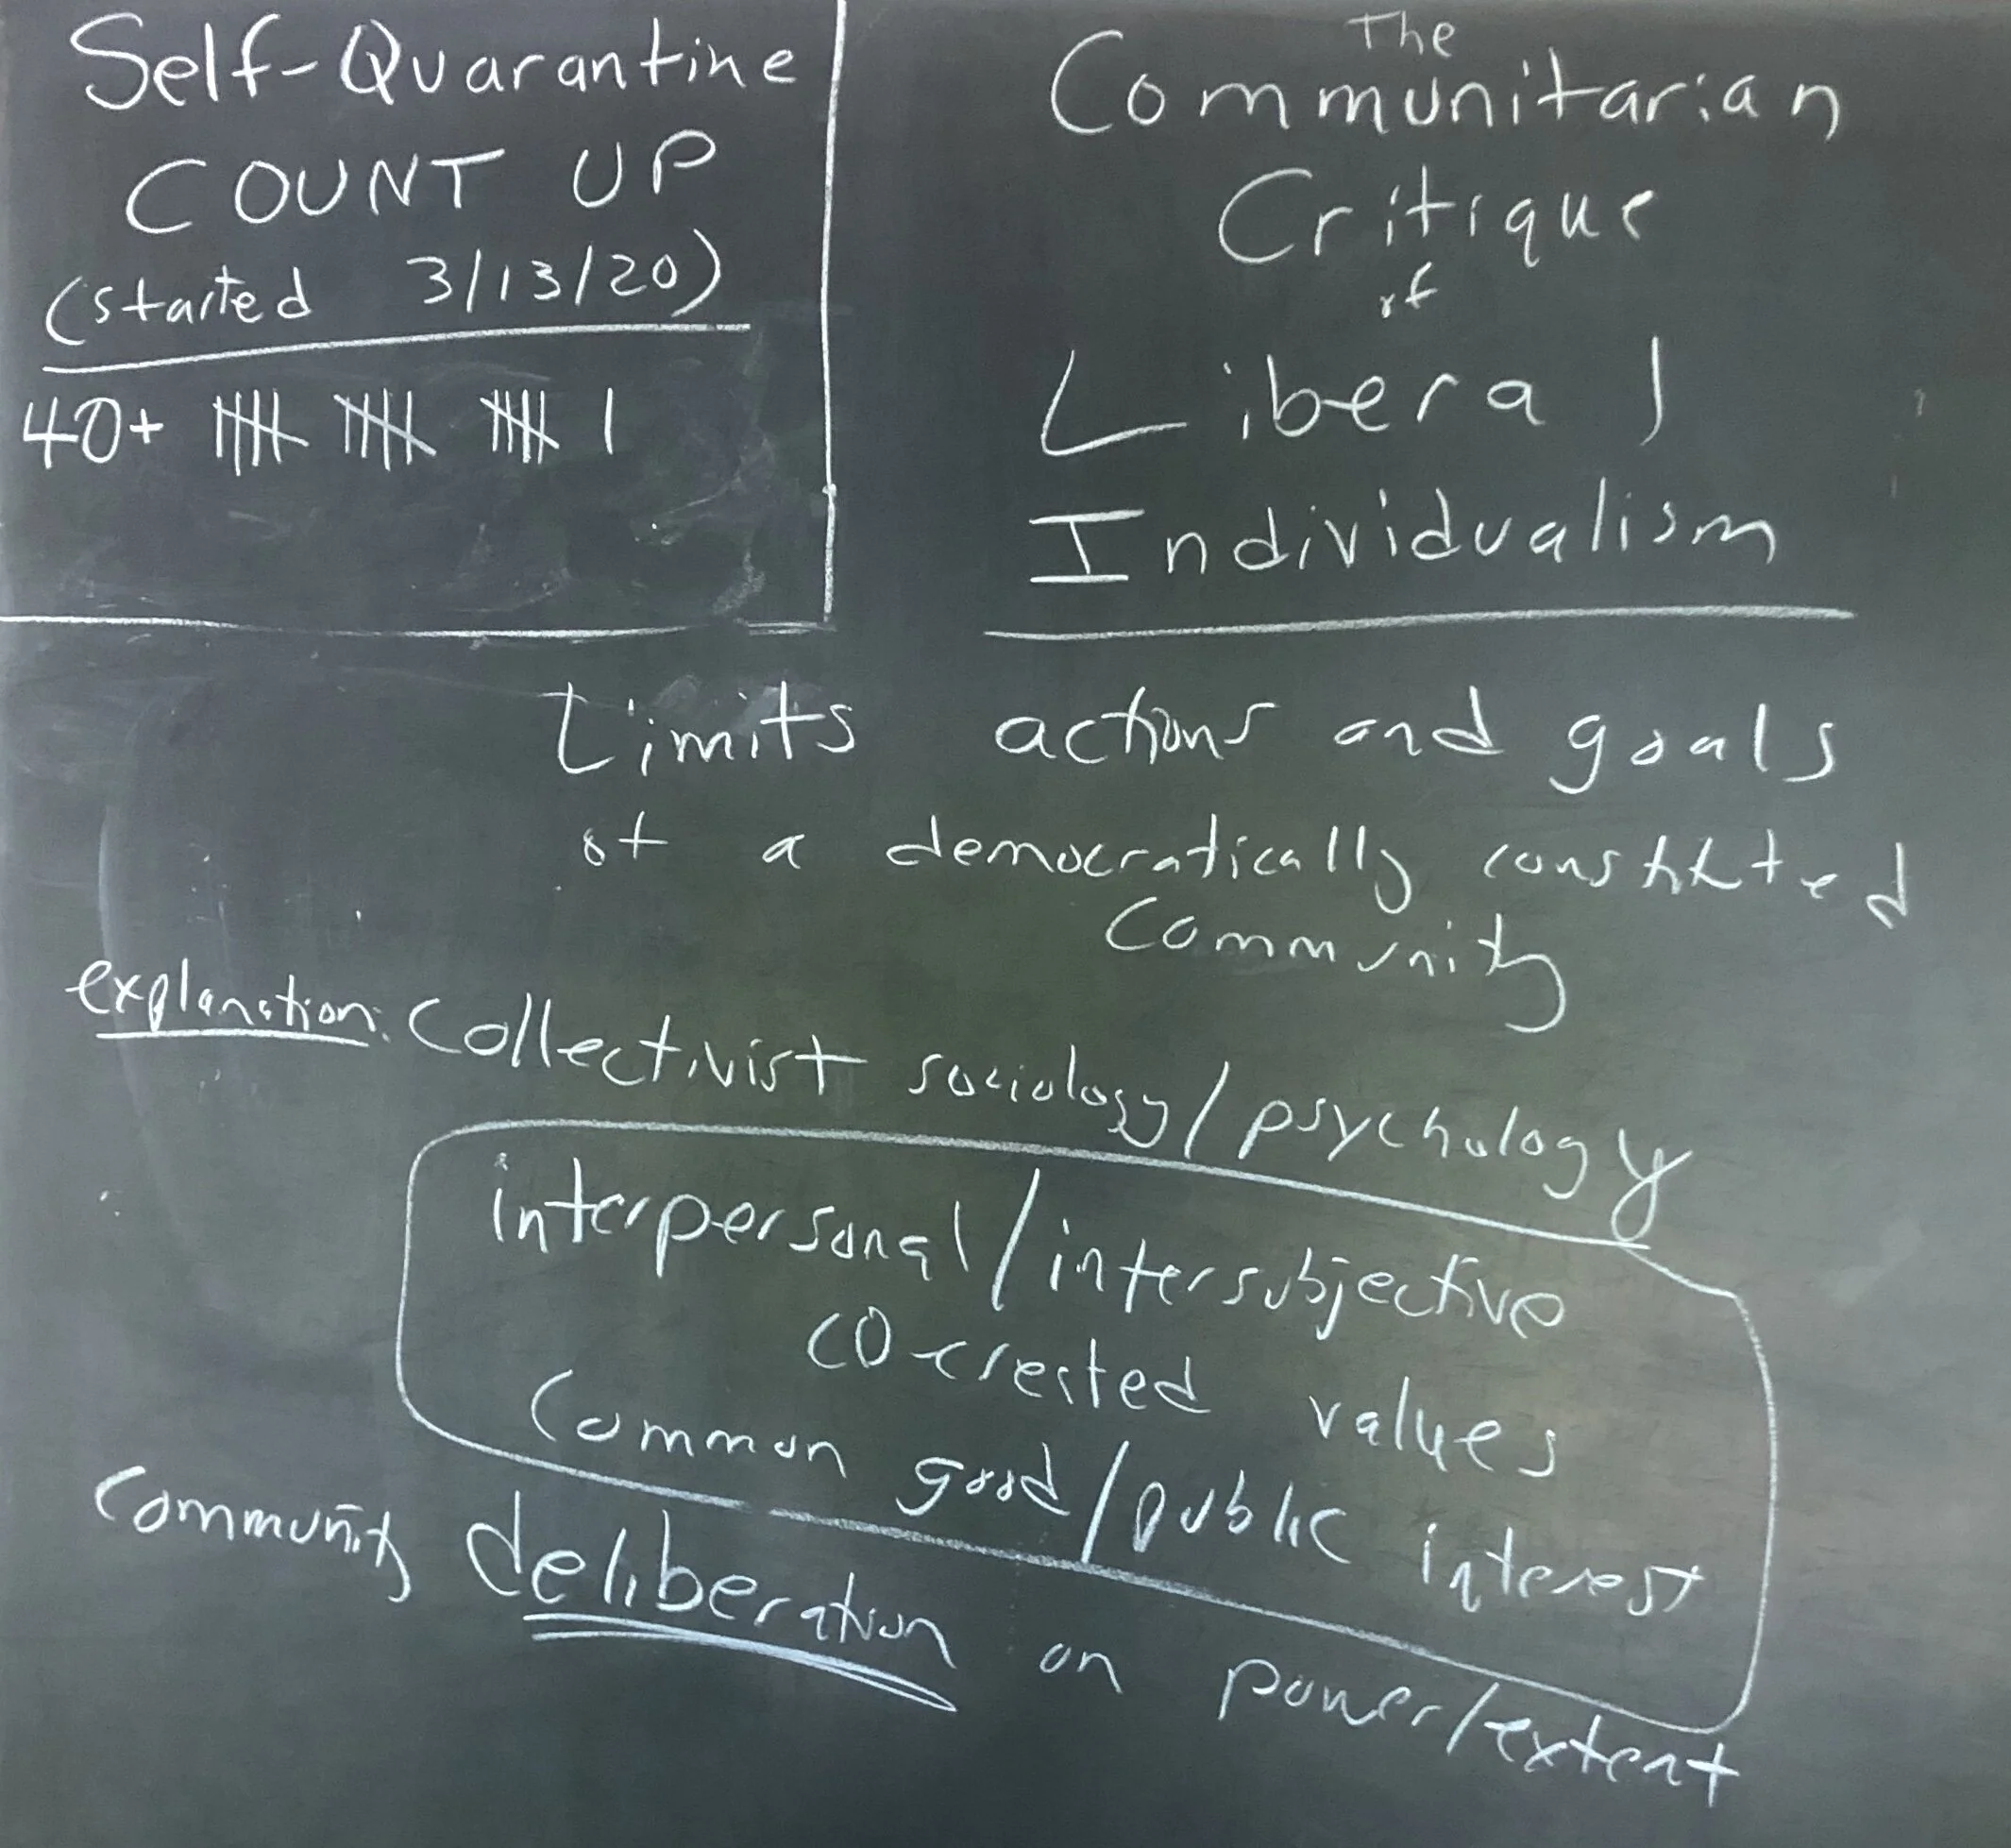 Self-Quarantine
COUNT UP
(started 3/13/20)
40+ 𝍸 𝍸 𝍸 |
The
Communitarian
Critique
of
Liberal
Individualism
Limits actions and goals
of a democratically constituted
community
explanation: Collectivist sociology/psychology
interpersonal/intersubjective
co-created values
Common good/public interest
Community deliberation on power/extent